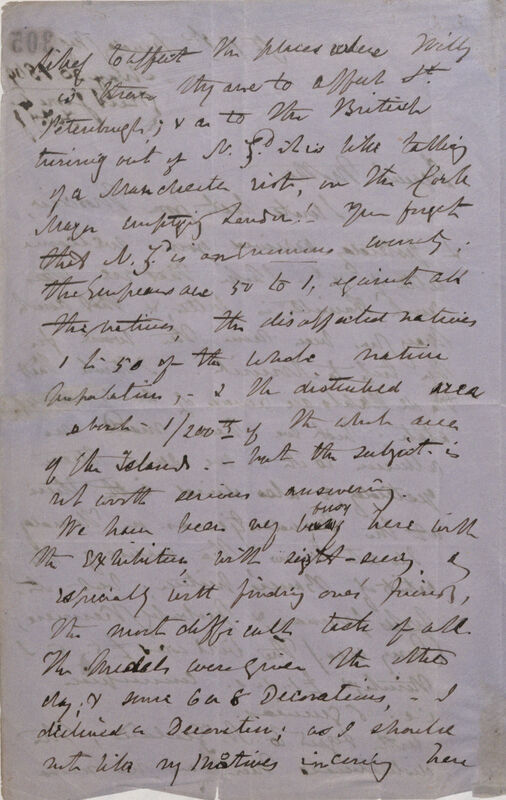 305
likely to affect the places where Willy
is than they are to affect St
Petersburgh; & as to the British
turning out of N. Zd it is like talking
of a Manchester riot, or the Cork
Mayor emptying London! - You forget
that N. Zd is an immense country.
the Europeans are 50 to 1, against all
the natives, the disaffected natives
1 to 50 of the whole native
population, - & the disturbed area
about - 1/200th of the whole area
of the Islands. - but the subject is
not worth serious answering.
We have been very busy here with
the Exhibition, with sight-seeing &
especially with finding one's friends,
the most difficult task of all.
The Medals were given the other
day; & some 6 or 8 Decorations, - I
declined a Decoration; as I should
not like my motives in coming here